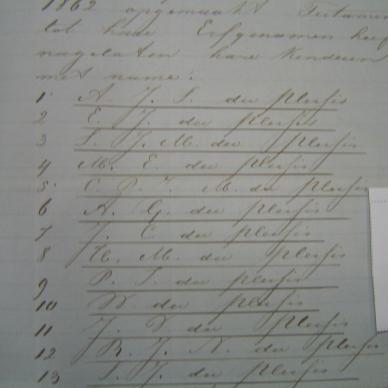 1862 opgemaakt Testamen
tot hare Erfgenamen heef
nagelaten hare Kinderen
met name:
1 A. J. S. du Plessis
2 E. J. du Plessis
3 S. J. M. du Plessis
4 M. E. du Plessis
5 C. P. J. M. du Plessis
6 A. G. du Plessis
7 J. C. du Plessis
8 H. M. du Plessis
9 P. J. du Plessis
10 W. du Plessis
11 J. D. du Plessis
12 R. J. N. du Plessis
13 S. J. du Plessis